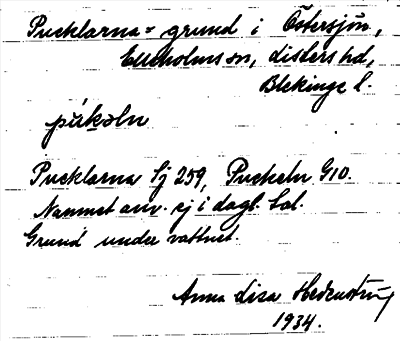 Pucklarna = grund i Östersjön,
Elleholms sn, Listers hd,
Blekinge l.
pukəln
Pucklarna Sj 259, Puckeln G10.
Namnet anv. ej i dagl. tal.
Grund under vattnet.
Anna Lisa
1934.